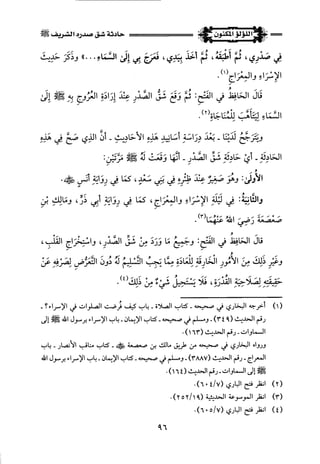 اللؤلؤ المكنون
حادثة شق صدره الشريف ﷺ
فِي صَدْرِي، ثُمَّ أَطْبَقَهُ، ثُمَّ أَخَذَ بِيَدِي، فَعَرَجَ بِي إِلَى السَّمَاءِ...» وَذَكَرَ حَدِيثَ
الْإِسْرَاءِ وَالْمِعْرَاجِ(١).
قَالَ الْحَافِظُ فِي الْفَتْحِ: ثُمَّ وَقَعَ شَقُّ الصَّدْرِ عِنْدَ إِرَادَةِ الْعُرُوجِ بِهِ ﷺ إِلَى
السَّمَاءِ لِيَتَأَهَّبَ لِلْمُنَاجَاةِ(٢).
وَيَتَرَجَّحُ لَدَيْنَا - بَعْدَ دِرَاسَةِ أَسَانِيدِ هَذِهِ الْأَحَادِيثِ - أَنَّ الَّذِي صَحَّ فِي هَذِهِ
الْحَادِثَةِ - أَيْ حَادِثَةِ شَقِّ الصَّدْرِ - أَنَّهَا وَقَعَتْ لَهُ ﷺ مَرَّتَيْنِ:
الْأُولَى: وَهُوَ صَغِيرٌ عِنْدَ ظِئْرِهِ فِي بَنِي سَعْدٍ، كَمَا فِي رِوَايَةِ أَنَسٍ ﷺ.
وَالثَّانِيَةُ: فِي لَيْلَةِ الْإِسْرَاءِ وَالْمِعْرَاجِ، كَمَا فِي رِوَايَةِ أَبِي ذَرٍّ، وَمَالِكِ بْنِ
صَعْصَعَةَ رَضِيَ اللهُ عَنْهُمَا(٣).
قَالَ الْحَافِظُ فِي الْفَتْحِ: وَجَمِيعُ مَا وَرَدَ مِنْ شَقِّ الصَّدْرِ، وَاسْتِخْرَاجِ الْقَلْبِ،
وَغَيْرِ ذَلِكَ مِنَ الْأُمُورِ الْخَارِقَةِ لِلْعَادَةِ مِمَّا يَجِبُ التَّسْلِيمُ لَهُ دُونَ التَّعَرُّضِ لِصَرْفِهِ عَنْ
حَقِيقَتِهِ لِصَلَاحِيَةِ الْقُدْرَةِ، فَلَا يَسْتَحِيلُ شَيْءٌ مِنْ ذَلِكَ(٤).
(١) أخرجه البخاري في صحيحه - كتاب الصلاة - باب كيف فُرضت الصلوات في الإسراء؟ -
رقم الحديث (٣٤٩) - ومسلم في صحيحه - كتاب الإيمان - باب الإسراء برسول الله ﷺ إلى
السماوات - رقم الحديث (١٦٣)
ورواه البخاري في صحيحه من طريق مالك بن صعصعة ﷺ - كتاب مناقب الأنصار - باب
المعراج - رقم الحديث (٣٨٨٧) - ومسلم في صحيحه - كتاب الإيمان - باب الإسراء برسول الله
ﷺ إلى السماوات - رقم الحديث (١٦٤).
(٢) انظر فتح الباري (٦٠٤/٧).
(٣) انظر الموسوعة الحديثية (٢٥٢/١٩).
(٤) انظر فتح الباري (٦٠٥/٧).
٩٦